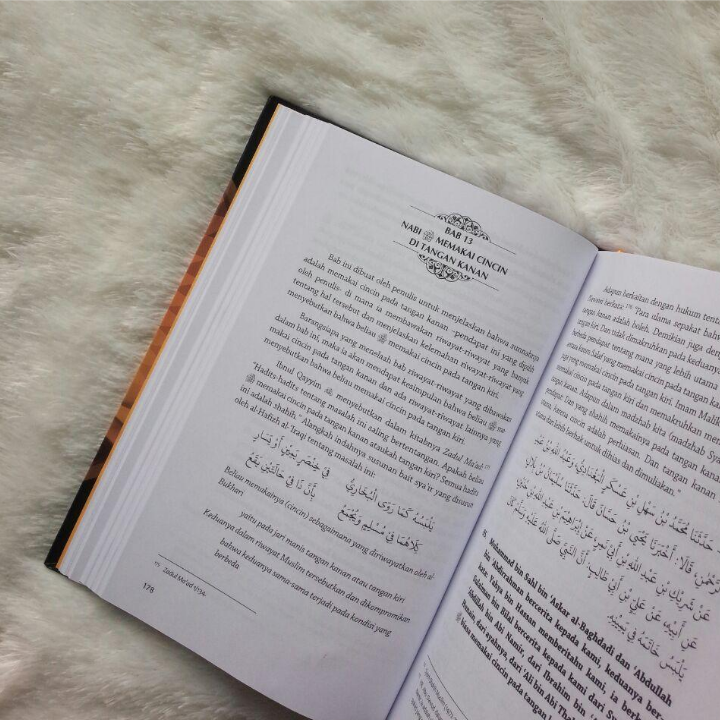 BAB 13
NABI ﷺ MEMAKAI CINCIN
DI TANGAN KANAN
Bab ini dibuat oleh penulis untuk menjelaskan bahwa sunnahnya
adalah memakai cincin pada tangan kanan -pendapat ini yang dipilih
oleh penulis- di mana ia membawakan riwayat-riwayat yang banyak
tentang hal tersebut dan menjelaskan kelemahan riwayat-riwayat yang
menyebutkan bahwa beliau ﷺ memakai cincin pada tangan kiri.
Barangsiapa yang menelaah bab riwayat-riwayat yang dibawakan
dalam bab ini, maka ia akan mendapat kesimpulan bahwa beliau ﷺ
makai cincin pada tangan kanan dan ada riwayat-riwayat lainnya yang
menyebutkan bahwa beliau memakai cincin pada tangan kiri.
Ibnul Qayyim menyebutkan dalam kitabnya Zadul Ma'ad
"Hadits-hadits tentang masalah ini saling bertentangan. Apakah beliau
ﷺ memakai cincin pada tangan kanan ataukah tangan kiri? Semua hadits
ini adalah shahih." Alangkah indahnya susunan bait sya'ir yang disusun
oleh al-Hafizh al-'Iraqi tentang masalah ini:
يَلْبَسُهُ كَمَا رَوَى الْبُخَارِيُّ فِي خِنْصَرٍ يَمِيْنٍ أَوْ يَسَارِ
كِلَاهُمَا فِي مُسْلِمٍ وَيُجْمَعُ بِأَنَّ ذَا فِي حَالَتَيْنِ يَقَعُ
Beliau memakainya (cincin) sebagaimana yang diriwayatkan oleh al-
Bukhari
yaitu pada jari manis tangan kanan atau tangan kiri
Keduanya dalam riwayat Muslim tersebutkan dan dikompromikan
bahwa keduanya sama-sama terjadi pada kondisi yang
berbeda
Zadul Ma'ad
178
Adapun berkaitan dengan hukum
"Para ulama sepakat
tangan kanan adalah boleh. Demikian juga
tangan kiri. Dan tidak dimakruhkan pada
berbeda pendapat tentang mana yang lebih utama
Salaf yang memakai cincin pada tangan kanan
yang memakai cincin pada tangan kiri. Imam
memakai cincin pada tangan kiri dan memakruhkan
tangan kanan. Adapun dalam madzhab kita (madzhab
pendapat. Dan yang shahih, memakainya pada tangan
karena cincin adalah perhiasan. Dan tangan kanan
dan lebih berhak untuk dihias dan dimuliakan."
حَدَّثَنَا مُحَمَّدُ بْنُ سَهْلِ بْنِ عَسْكَرٍ الْبَغْدَادِيُّ وَعَبْدُ اللَّهِ بْنُ
قَالَا: أَخْبَرَنَا يَحْيَى بْنُ حَسَّانَ قَالَ: حَدَّثَنَا سُلَيْمَانُ بْنُ بِلَالٍ
عَنْ شَرِيْكِ بْنِ عَبْدِ اللَّهِ بْنِ أَبِي نَمِرٍ عَنْ إِبْرَاهِيْمَ بْنِ عَبْدِ اللَّهِ
عَنْ أَبِيْهِ عَنْ عَلِيِّ بْنِ أَبِي طَالِبٍ: أَنَّ النَّبِيَّ صَلَّى اللَّهُ عَلَيْهِ
يَلْبَسُ خَاتَمَهُ فِي يَمِيْنِهِ
Muhammad bin Sahl bin 'Askar al-Baghdadi dan 'Abdullah
bin Abdirrahman bercerita kepada kami, keduanya
kata: Yahya bin Hassan memberitahu kami, ia
Sulaiman bin Bilal bercerita kepada kami dari
Abdillah bin Abi Namir, dari Ibrahim bin
Hunain, dari ayahnya, dari 'Ali bin Abi
biasa memakai cincin pada tangan